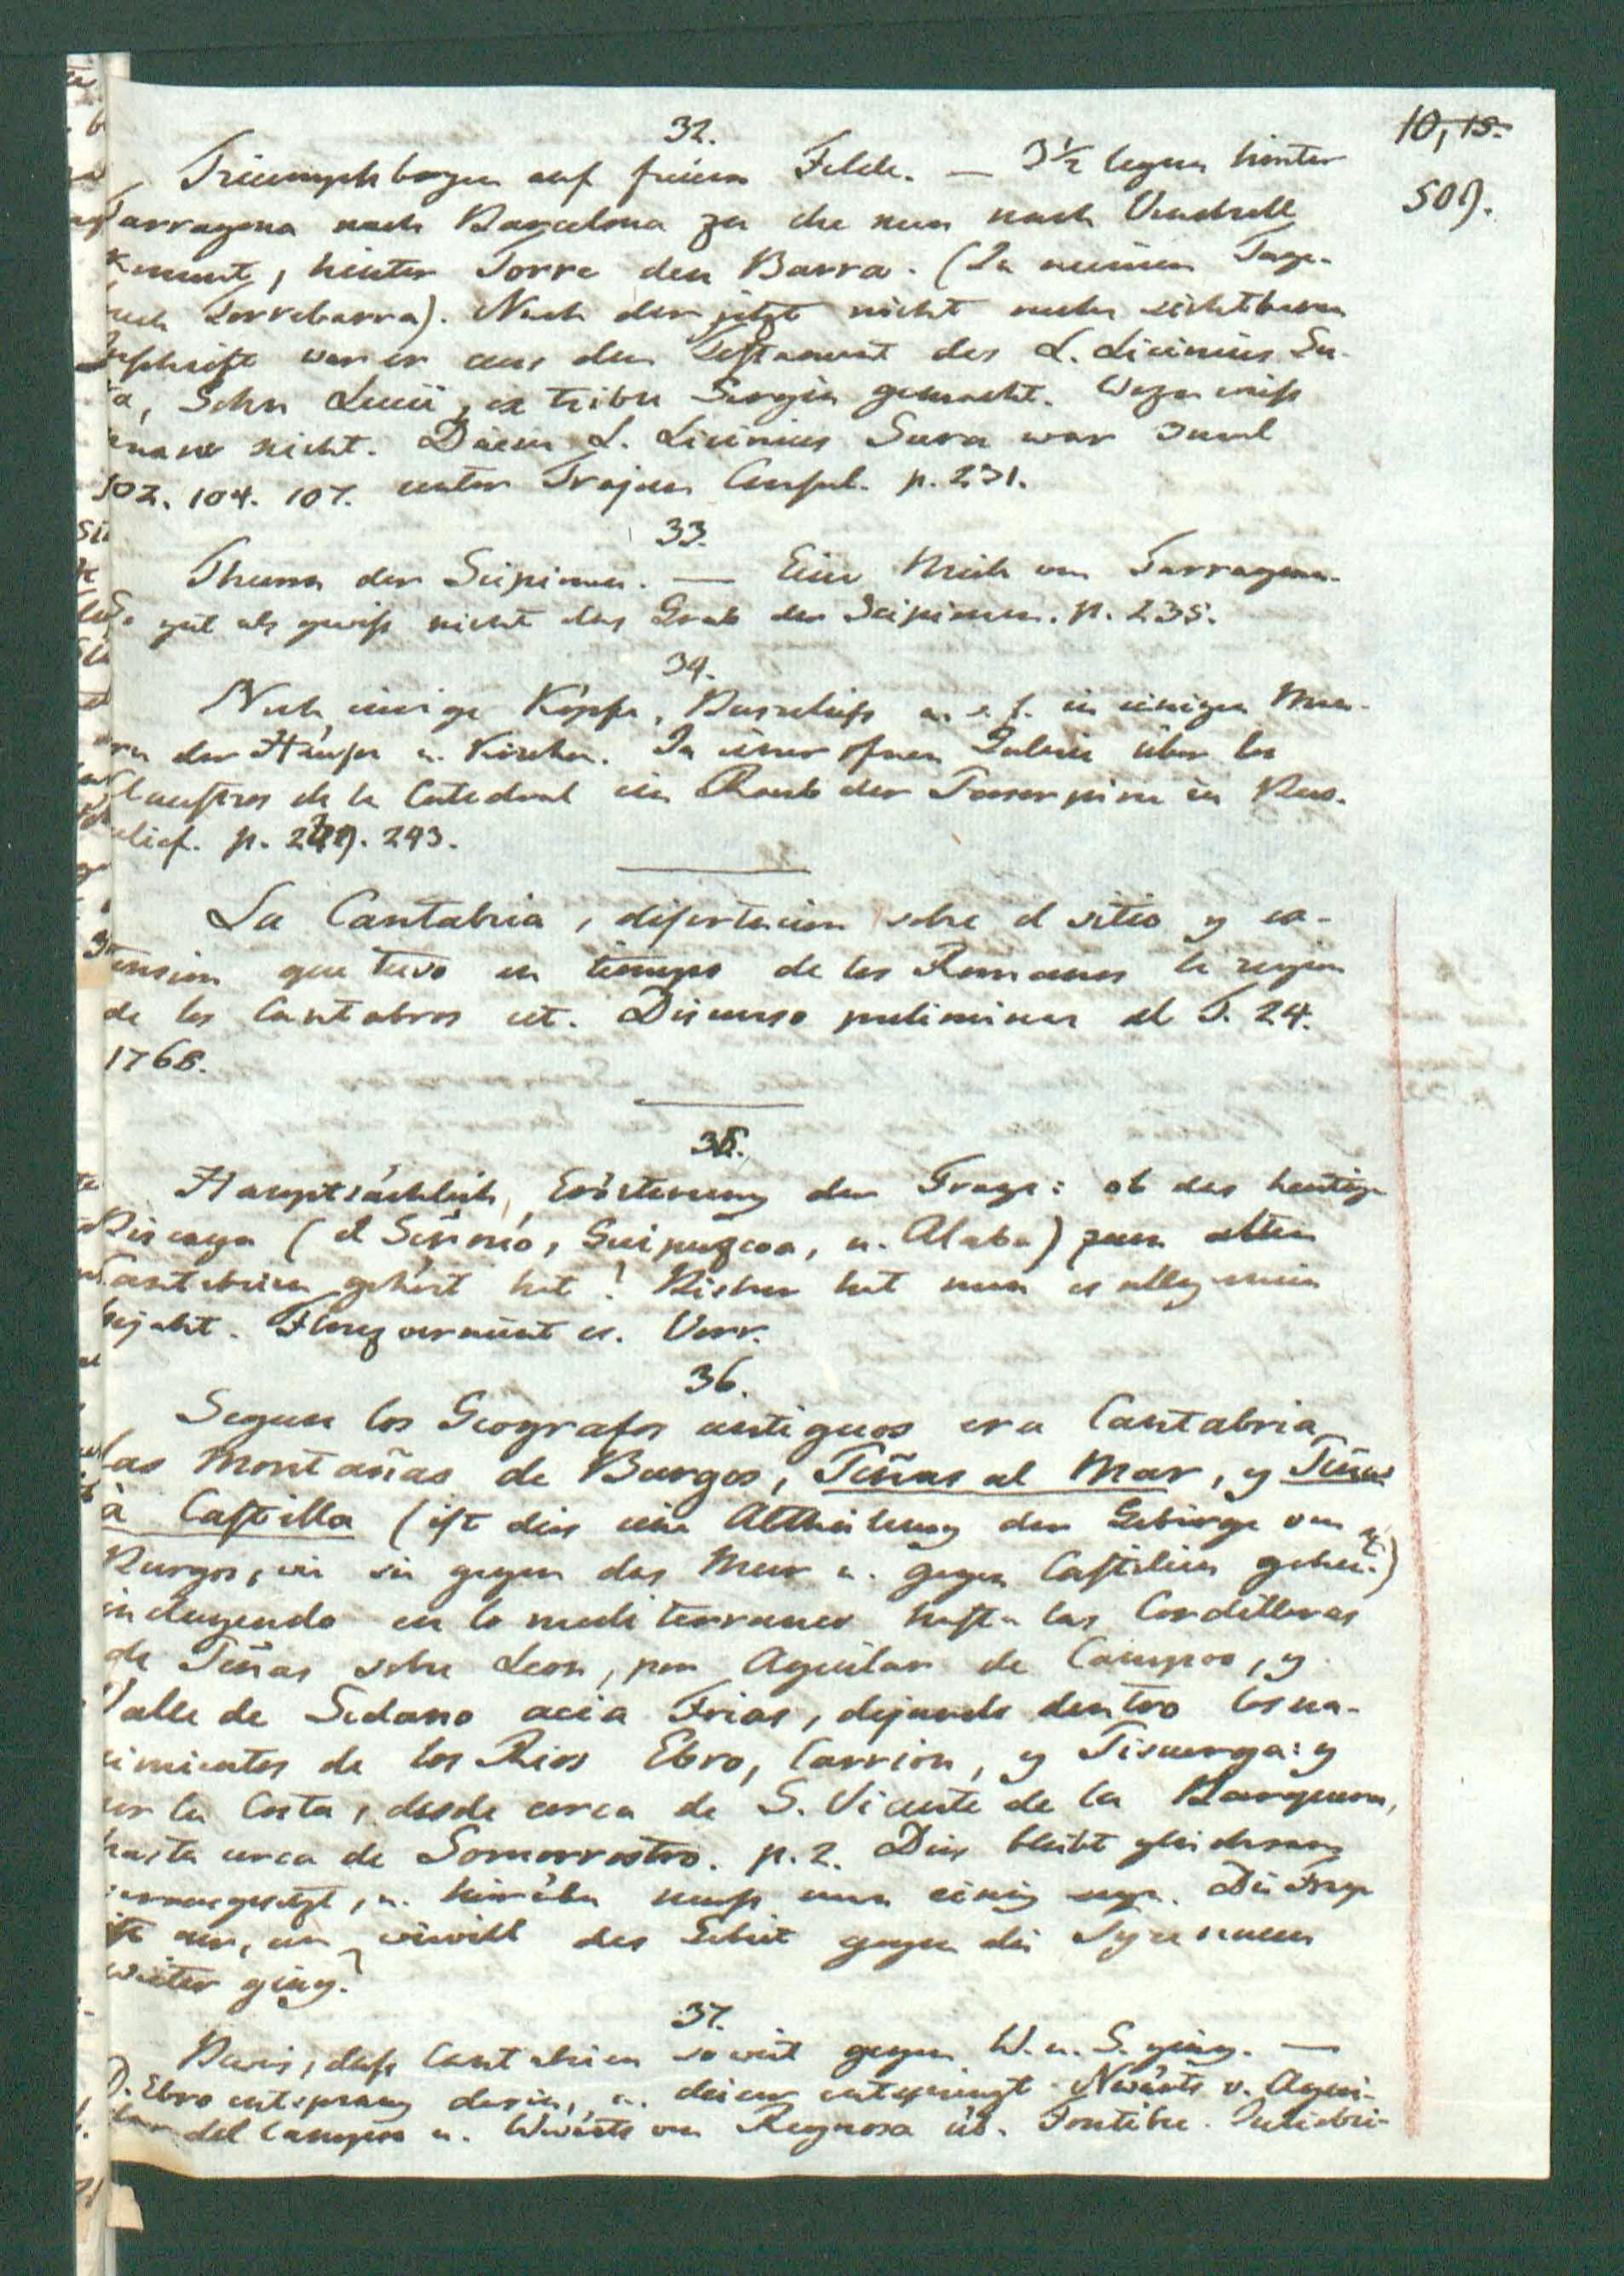 10, 15.
509.
32.
Triumphbogen auf freiem Felde. — 3½ leguas hinter
Tarragona nach Barcelona zu ehe man nach Vendrell
kommt, hinter Torre den Barra. (In meinem Tage-
buch Torrebarra). Nach der jetzt nicht mehr sichtbaren
Inschrift war er aus dem Testament des L. Licinius Su-
ra, Sohn Lucii, ex tribu Sergia gemacht. Wozu weiß
man nicht. Dieser L. Licinius Sura war 3mal
102. 104. 107. unter Trajan Consul. p. 231.
33.
Thurm der Scipionen. — Eine Meile von Tarragona.
So gut als gewiß nicht das Grab der Scipionen. p. 235.
34.
Noch einige Köpfe, Basreliefs u. s. f. in einigen Mau-
ern der Häuser u. Kirchen. In einer ofnen Galerie über los
Claustros de la Catedral ein Raub der Proserpina in Bas-
relief. p. 243.
La Cantabria, disertacion sobre el sitio y ex-
tension que tuvo en tiempo de los Romanos la region
de los Cantabros cet. Discurso preliminar al T. 24.
1768.
35.
Hauptsächlich Erörterung der Frage: ob das heutige
Biscaya (el Señorio, Guipuzcoa, u. Alaba) zum alten
Cantabrien gehört hat? Bisher hat man es allgemein
bejaht. Florez verneint es. Vorr.
36.
Segun los Geografos antiguos era Cantabria
las Montañas de Burgos, Peñas al Mar, y Peñas
à Castilla (ist dies eine Abtheilung der Gebirge von
Burgos, wie sie gegen das Meer u. gegen Castilien gehen?)
incluyendo en lo mediterraneo hasta las Cordilleras
de Peñas sobre Leon, por Aguilar de Campoo, y
Valle de Sedano acia Frias, dejando dentro los na-
cimientos de los Rios Ebro, Carrion, y Pisuerga: y
por la Costa, desde cerca de S. Vicente de la Barquera,
hasta cerca de Somorrostro. p. 2. Dies bleibt gleichsam
vorausgesetzt, u. hierüber muß man einig seyn. Die Frage
ist nur, um wieviel das Gebiet gegen die Pyrenaeen
weiter ging?
37.
Beweis, daß Cantabrien so weit gegen W. u. S. ging. —
D. Ebro entsprang darin, u. dieser entspringt Nwärts v. Agui-
lar del Campoo u. Wwärts von Reynosa üb. Fontibre. Juliobri-